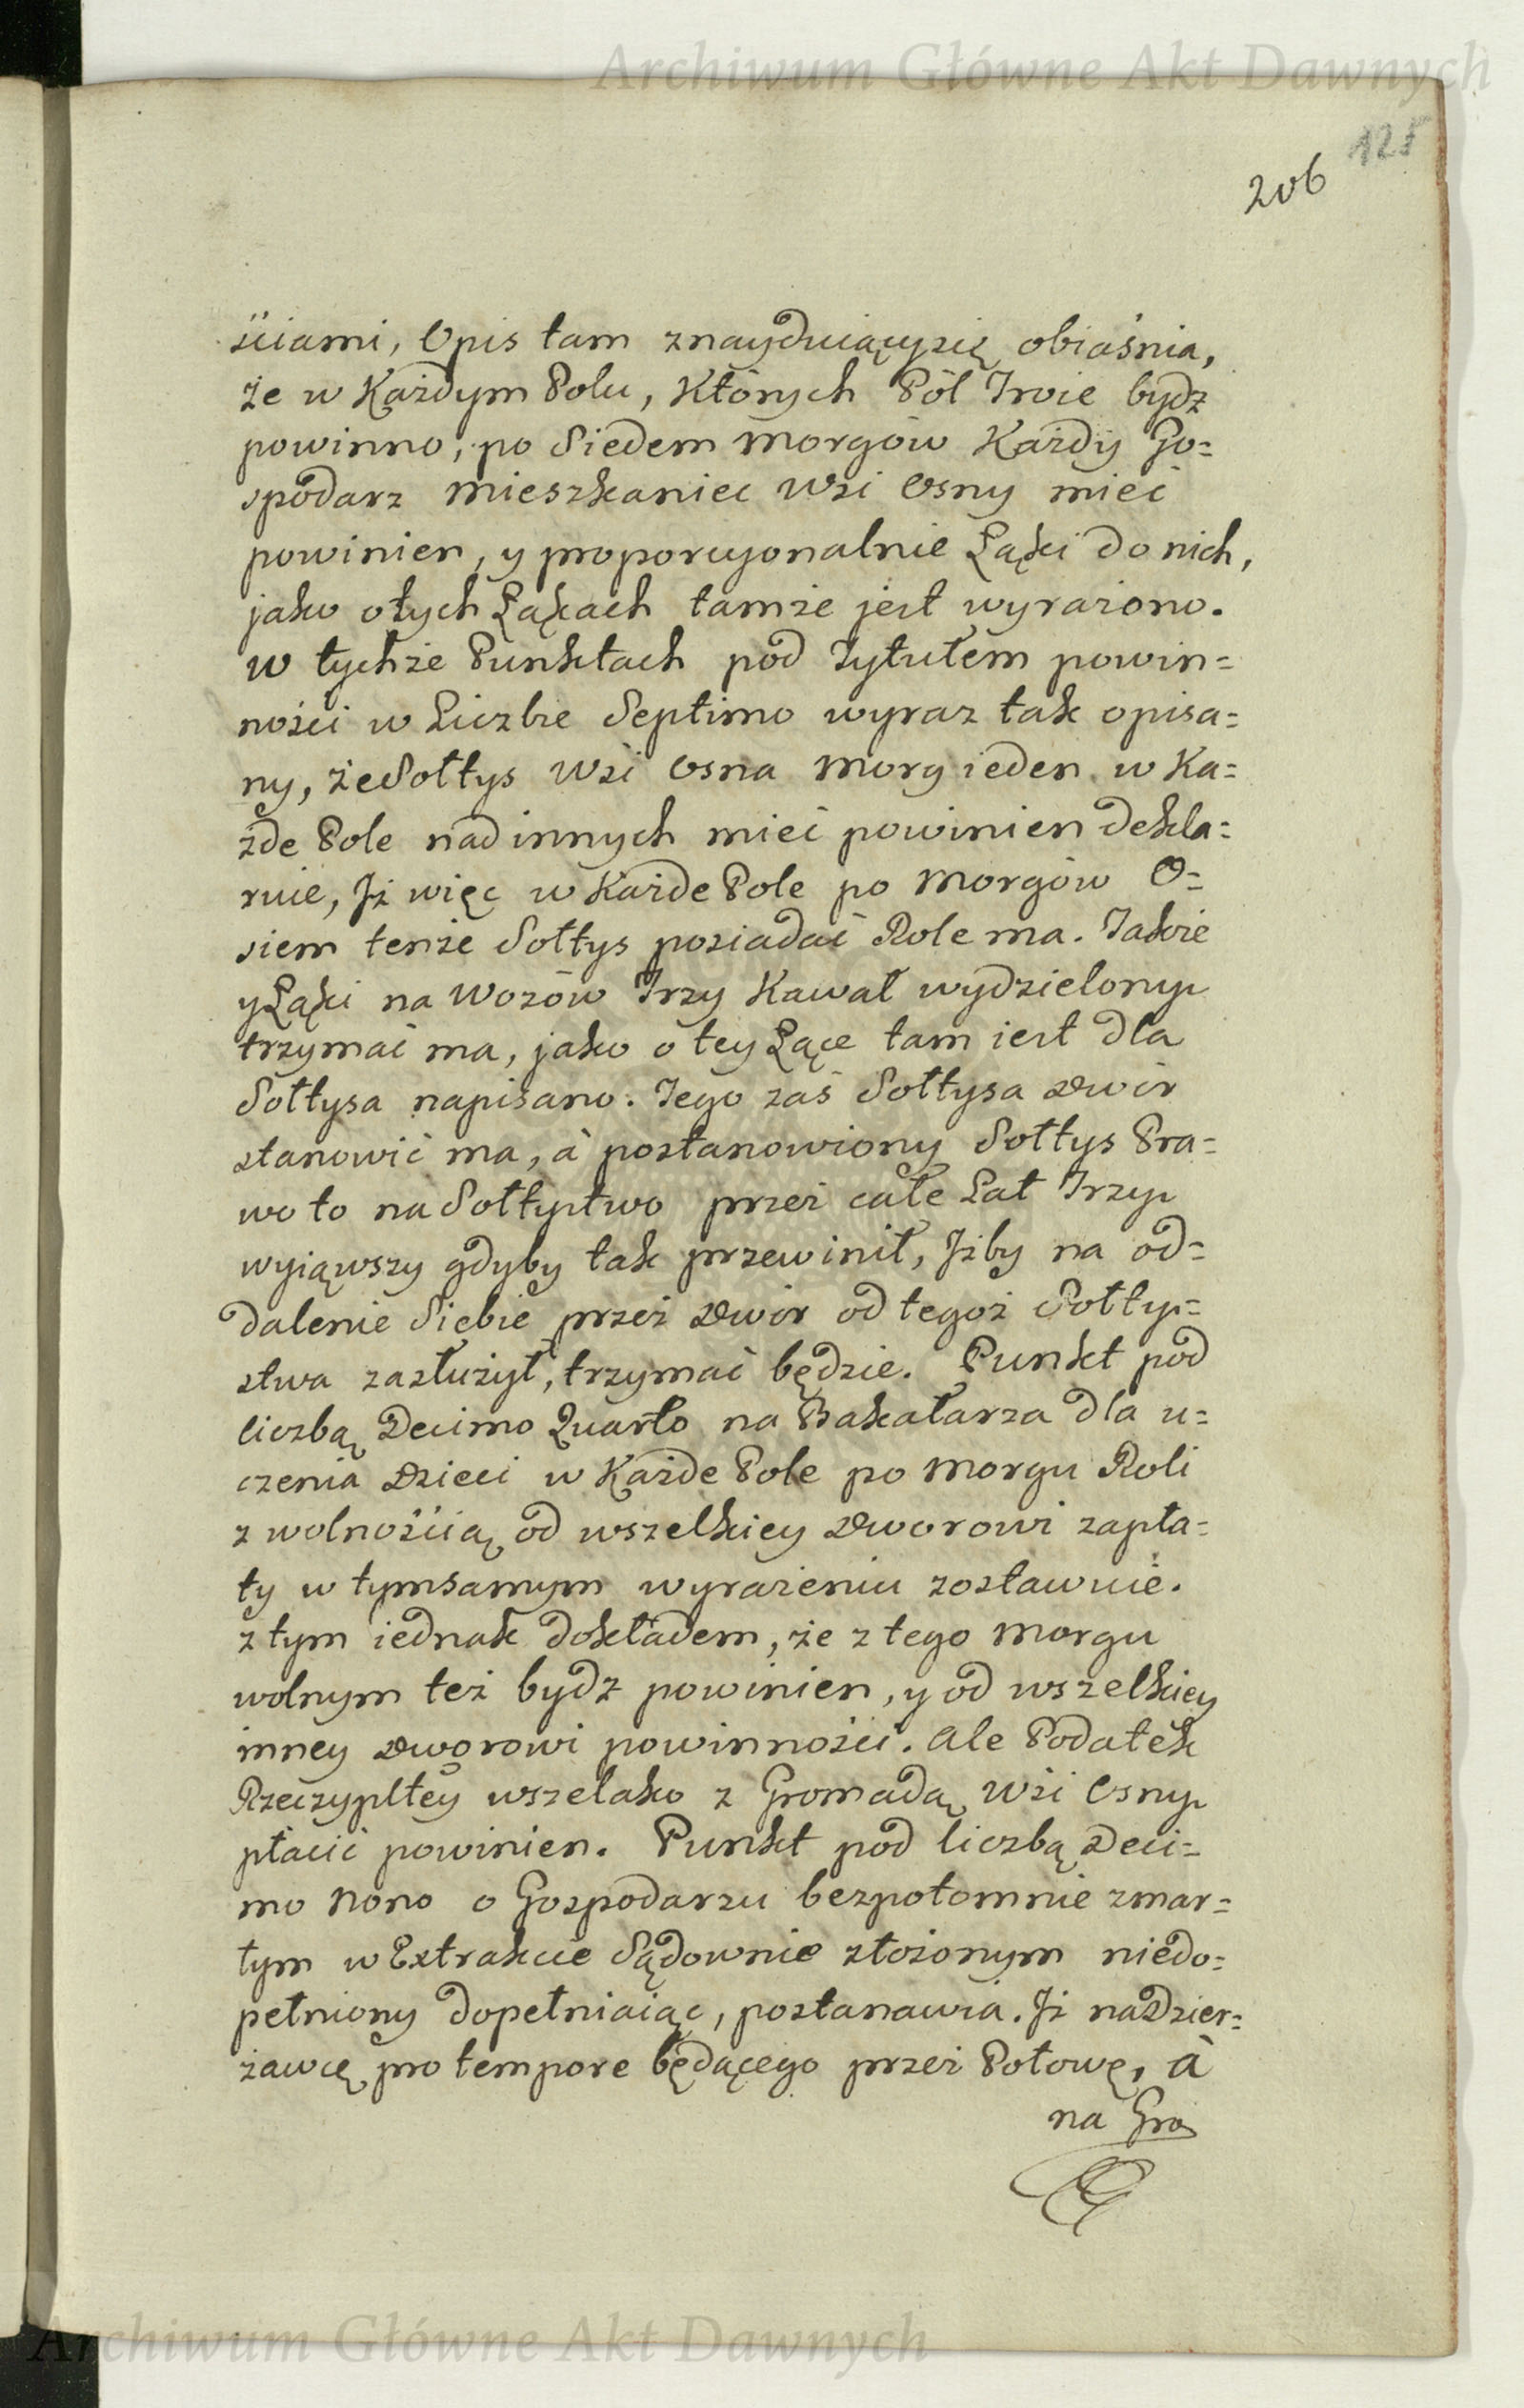 Archiwum Główne Akt Dawnych
125
206
ściami, Opis tam znayduiącysię obiaśnia,
że w Każdym Polu, Których Pól Troie bydz
powinno, po Siedem Morgów Każdy Go=
spodarz Mieszkaniec Wsi Osny mieć
powinien, y proporcyonalnie Łąki do nich,
jako otych Łąkach tamże jest wyrażono.
W tychże Punktach pod Tytułem powin=
ności w Liczbie Septimo wyraz tak opisa=
ny, że Sołtys Wsi Osna Morg ieden w Ka=
żde Pole nad innych mieć powinien dekla=
ruie, Iż więc w Każde Pole po Morgów O=
siem tenże Sołtys posiadać Role ma. Takoie
y Łąki na Wozów Trzy Kawał wydzielony
trzymać ma, jako o tey Łące tam iest dla
Sołtysa napisano. Tego zaś Sołtysa Dwór
stanowić ma, à postanowiony Sołtys Pra=
wo to na Sołtystwo przez całe Lat Trzy
wyiąwszy gdyby tak przewinił, Iżby na od=
dalenie Siebie przez Dwór od tegoż Sołty=
stwa zasłużył, trzymać będzie. Punkt pod
liczbą Decimo Quarto na Bakałarza dla u=
czenia Dzieci w Każde Pole po Morgu Roli
z wolnością od wszelkiey Dworowi zapła=
ty w tymsamym wyrażeniu zostawuie.
z tym iednak dokładem, że z tego Morgu
wolnym też bydz powinien, y od wszelkiey
inney Dworowi powinności. Ale Podatek
Rzeczypltey wszelako z Gromadą Wsi Osny
płacić powinien. Punkt pod liczbą Deci=
mo Nono o Gospodarzu bezpotomnie zmar=
tym w Extrakcie Sądownie złożonym niedo=
pełniony dopełniaiąc, postanawia. Iż na Dzier=
żawcę pro tempore będącego przez Połowę, à
na Gro
Archiwum Główne Akt Dawnych